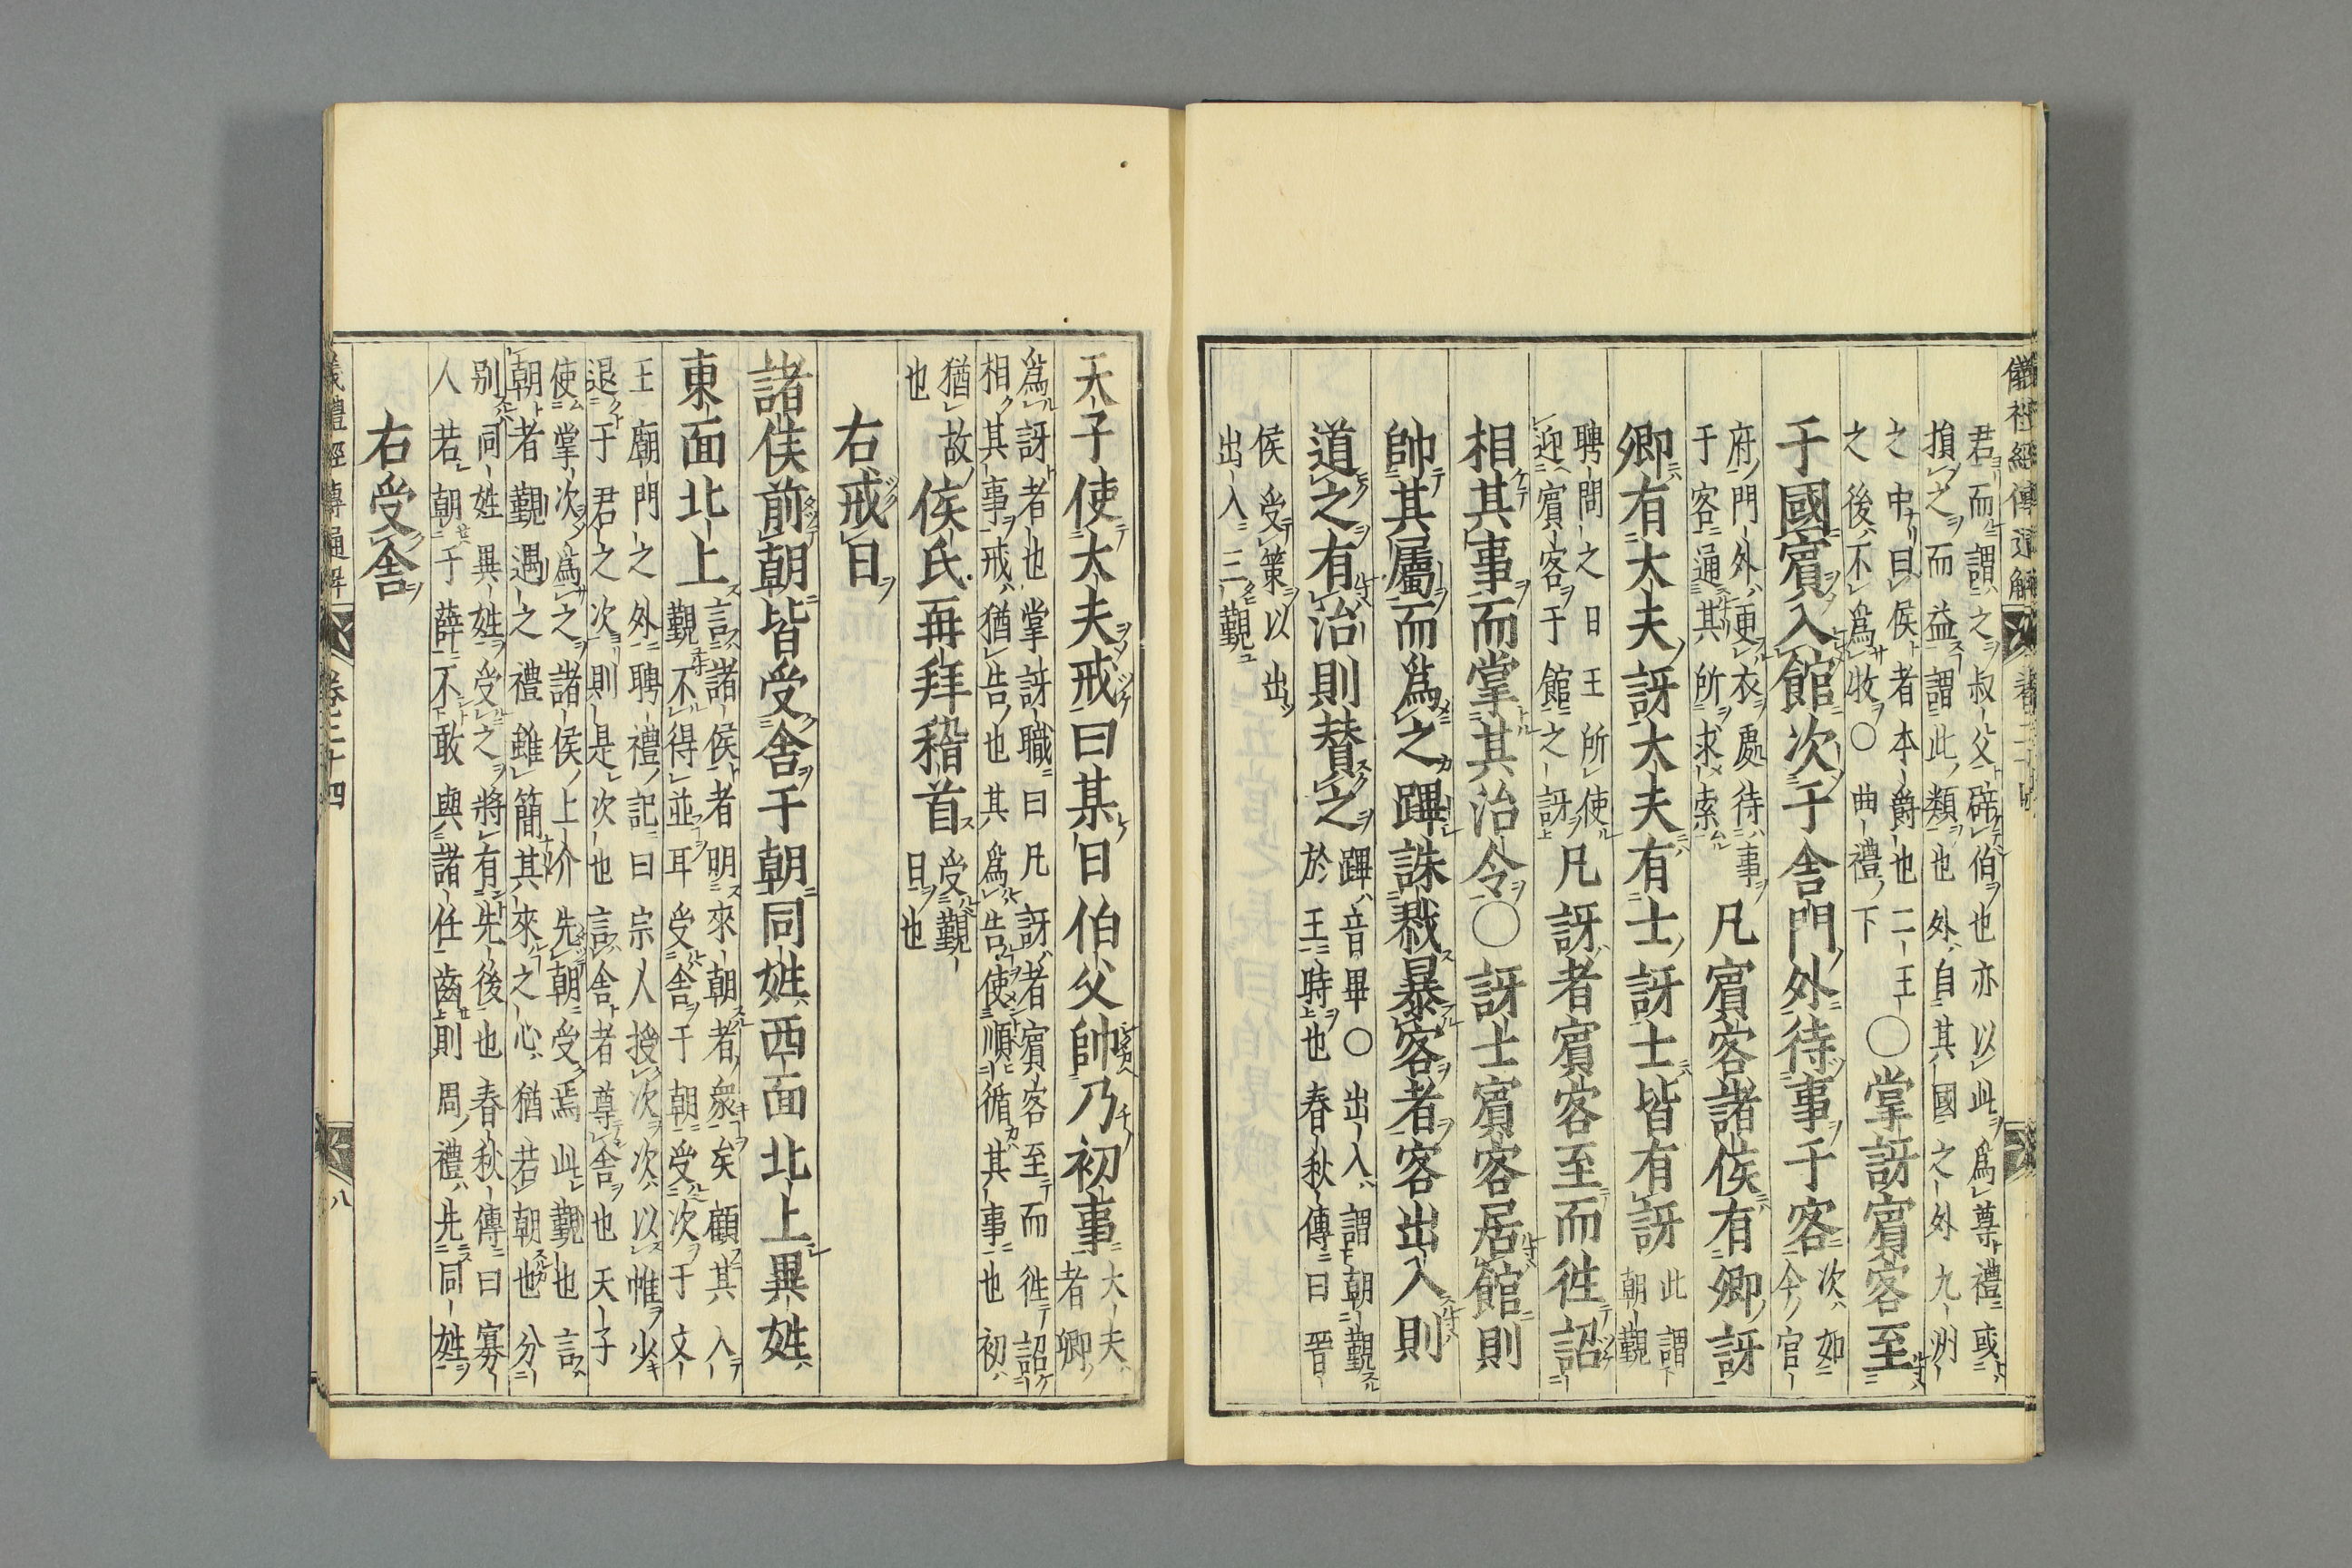 儀禮經傳通解 卷二十四
君而謂之叔父辟伯也亦以此爲尊禮或
損之而益謂此類也外自其國之外九州
之中曰侯者本爵也二王
之後不爲牧〇曲禮下
〇掌訝賓客至
于國賓入館次于舍門外待事于客
次如
今官
府門外更衣處待事
于客通其所求索
凡賓客諸侯有卿訝
卿有大夫訝大夫有士訝士皆有訝
此謂
朝覲
聘問之日王所使
迎賓客于館之訝
凡訝者賓客至而徃詔
相其事而掌其治令〇訝士賓客居館則
帥其屬而爲之蹕誅戮暴客者客出入則
道之有治則賛之
蹕音畢〇出入謂朝覲
於王時也春秋傳曰晉
侯受策以出
出入三覲
天子使大夫戒曰某日伯父帥乃初事
大夫
者卿
爲訝者也掌訝職曰凡訝者賓客至而徃詔
相其事戒猶告也其爲告使順循其事也初
猶故
也
侯氏再拜稽首
受覲
日也
右戒日
諸侯前朝皆受舍于朝同姓西面北上異姓
東面北上
言諸侯者明來朝者衆矣顧其入
覲不得並耳受舍于朝受次于文
王廟門之外聘禮記曰宗人授次次以帷少
退于君之次則是次也言舍者尊舍也天子
使掌次爲之諸侯上介先朝受焉此覲也言
朝者覲遇之禮雖簡其來之心猶若朝也分
别同姓異姓受之將有先後也春秋傳曰寡
人若朝于薛不敢與諸任齒則周禮先同姓
右受舍
儀禮經傳通解 卷二十四 八